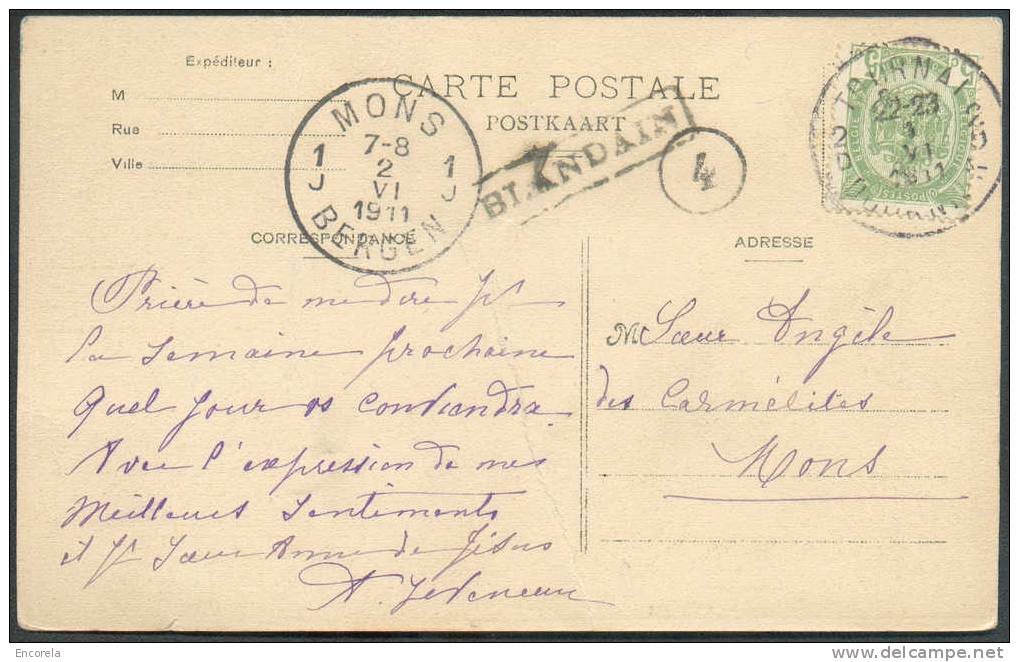 Expéditeur :
CARTE POSTALE
POSTKAART
M
Rue
Ville
MONS
7-8
1 2 1
J VI J
1911
BERGEN
BLANDAIN
4
22-23
VI
1911
CORRESPONDANCE
ADRESSE
Prière de me dire
la semaine prochaine
Quel jour vs conviendra
Avec l'expression de mes
Meilleurs sentiments
et Sœur Anne de Jésus
A.
M Sœur Angèle
des Carmélites
Mons
Encorela
www.delcampe.net